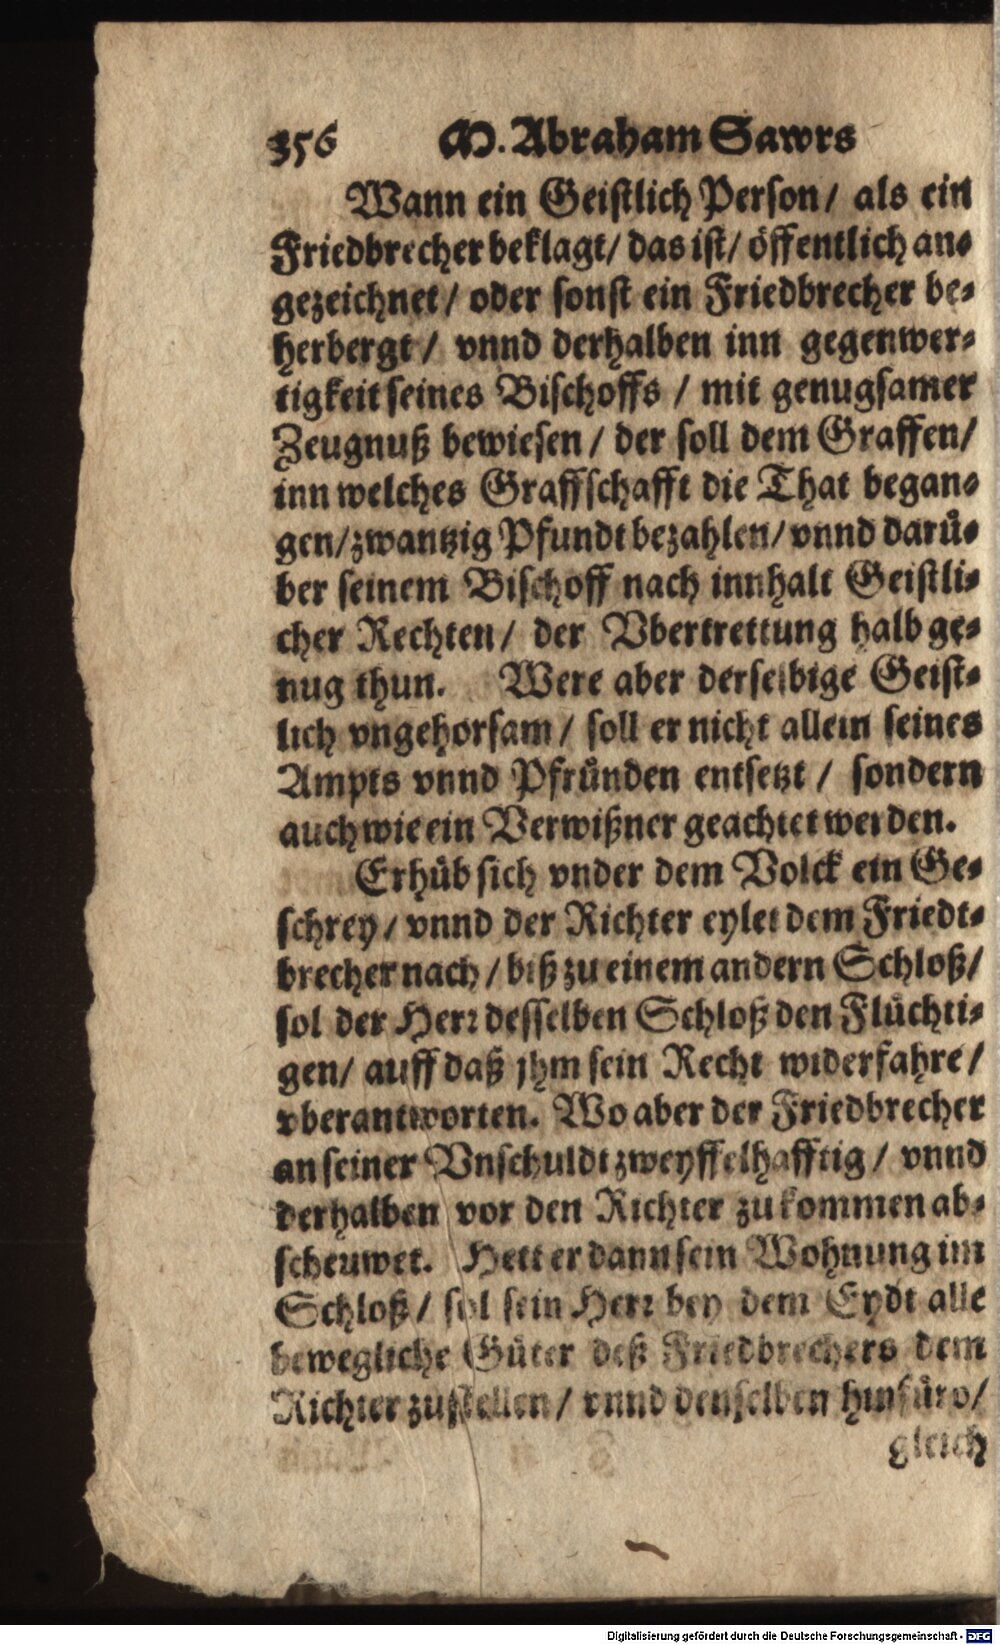 356 M. Abraham Sawrs
Wann ein Geistlich Person / als ein
Friedbrecher beklagt / das ist / öffentlich an-
gezeichnet / oder sonst ein Friedbrecher be-
herbergt / vnnd derhalben inn gegenwer-
tigkeit seines Bischoffs / mit genugsamer
Zeugnuß bewiesen / der soll dem Graffen /
inn welches Graffschafft die That began-
gen / zwantzig Pfundt bezahlen / vnnd darü-
ber seinem Bischoff nach innhalt Geistli-
cher Rechten / der Vbertrettung halb ge-
nug thun. Were aber derselbige Geist-
lich vngehorsam / soll er nicht allein seines
Ampts vnnd Pfründen entsetzt / sondern
auch wie ein Verwißner geachtet werden.
Erhüb sich vnder dem Volck ein Ge-
schrey / vnnd der Richter eylet dem Friedt-
brecher nach / biß zu einem andern Schloß /
sol der Herr desselben Schloß den Flüchti-
gen / auff daß jhm sein Recht widerfahre /
vberantworten. Wo aber der Friedbrecher
an seiner Vnschuldt zweyffelhafftig / vnnd
derhalben vor den Richter zu kommen ab-
scheuwet. Hett er dann sein Wohnung im
Schloß / sol sein Herr bey dem Eydt alle
bewegliche Güter deß Friedbrechers dem
Richter zustellen / vnnd denselben hinfüro /
gleich
Digitalisierung gefördert durch die Deutsche Forschungsgemeinschaft - DFG